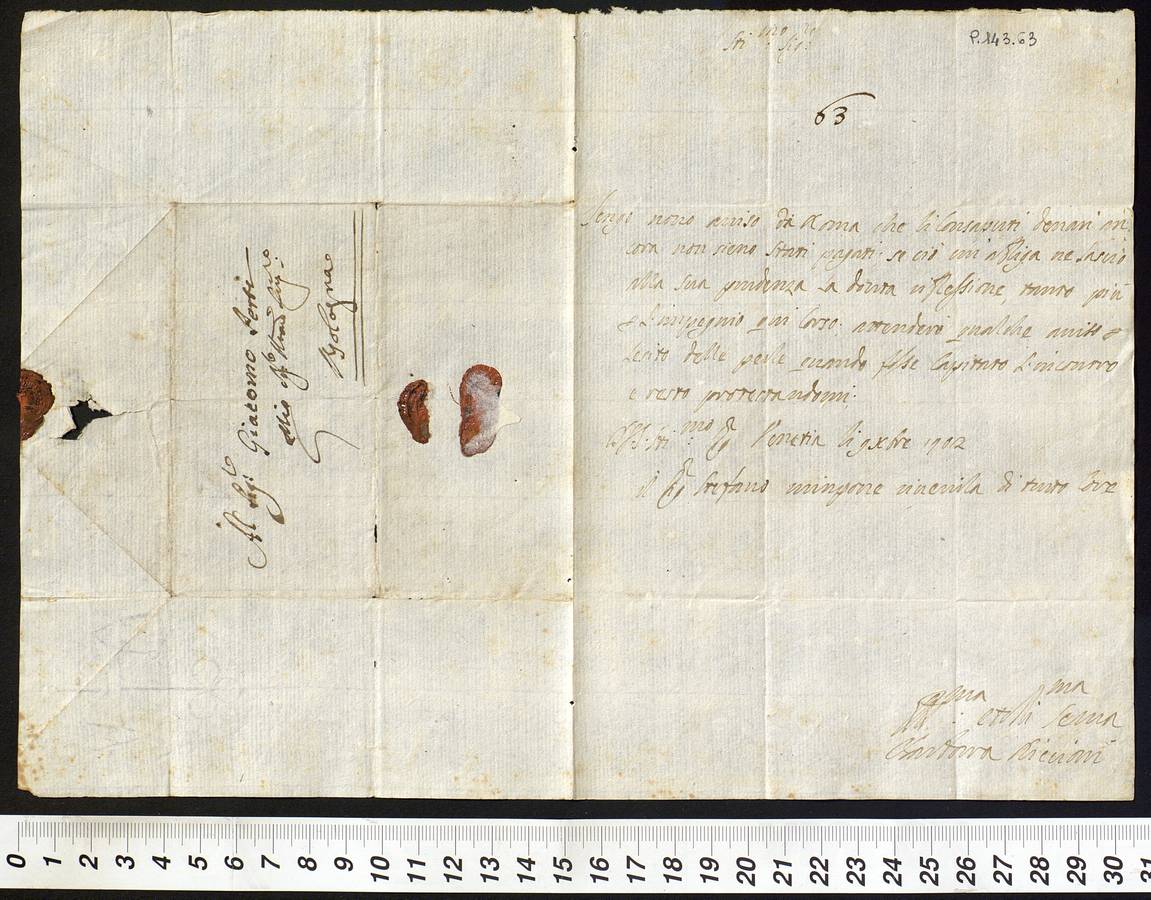 P.143.63
Sti:mo Sig:re
63
Tengo novo aviso da Roma che li Consaputi denari an
cora non sieno stati pagati se ciò mi obliga ne lascio
alla sua prudenza la dovuta riflessione tanto più
L'impegnio qui Corso. attenderò qualche aviso
Lesito delle perle quando fosse Capitato L'incontro
e resto protestandomi.
Venetia li 9 xbre 1702
il Sig.r Stefano
di tutto
Serva
Barbara Riccioni
Al Sig:r Giacomo Perti
mio
Bologna
0 1 2 3 4 5 6 7 8 9 10 11 12 13 14 15 16 17 18 19 20 21 22 23 24 25 26 27 28 29 30 31